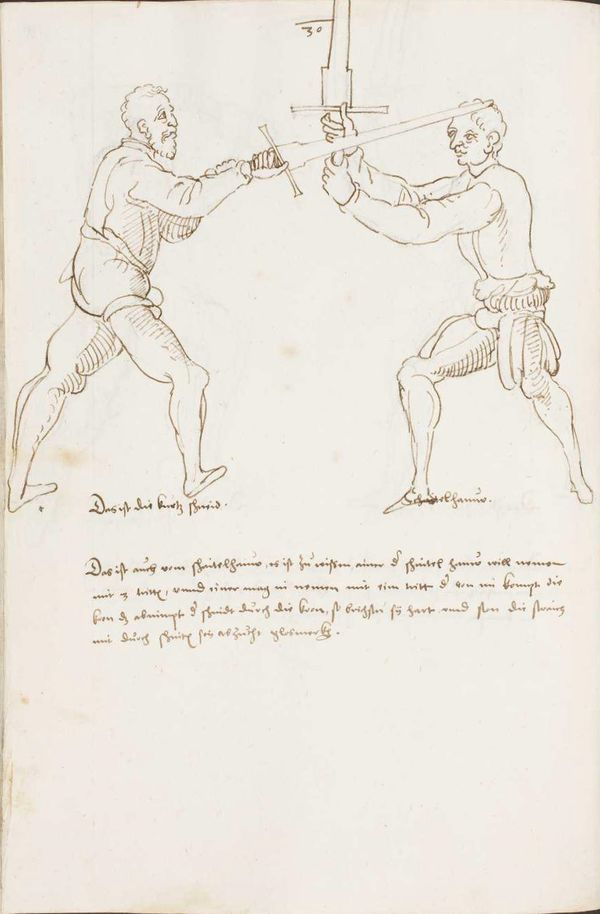 30
Das ist die kurtz schneid.
Schaitelhauw.
Das ist auch vom schaitelhauw, es ist zu wissen ainer d schaitel hauw will nemen
mit tritt, vnnd einer mag in nemen mit eim tritt d von im kompt die
kron d abnimpt d schnidt durch die kron, so brichstu sy hart vnd ston die straich
mit durch schnitt